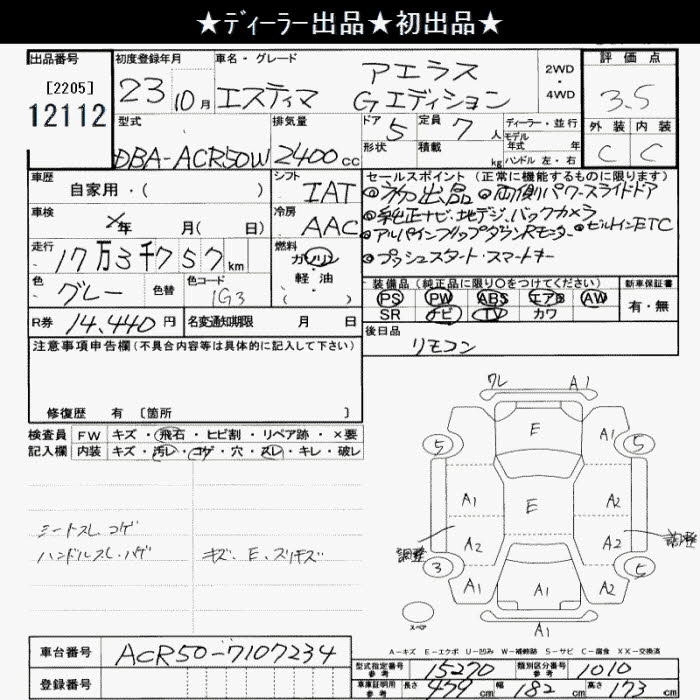 ★ﾃﾞｨｰﾗｰ出品★初出品★
出品番号
[2205]
12112
初度登録年月
23 10月
車名・グレード
エスティマ アエラス Gエディション
2WD・4WD
評価点
3.5
外装 内装
C C
型式
DBA-ACR50W
排気量
2400cc
ドア 5
形状
定員 7人
積載 kg
ディーラー・並行
モデル年式 年
ハンドル 左・右
車歴
自家用・( )
シフト
IAT
車検
年 月( 日)
冷房
AAC
走行
17万3千757km
燃料
ガソリン
軽・油
( )
色
グレー 色替
色コード
1G3
R券 14,440円
名変通知期限 月 日
セールスポイント (正常に機能するものに限ります)
初出品 両側パワースライドドア
純正ナビ、地デジ、バックカメラ
アルパインフリップダウンRモニター ビルトインETC
プッシュスタート・スマートキー
装備品(純正品に限り○をつけてください)
新車保証書
PS PW ABS エアB AW
有・無
SR ナビ TV カワ
後日品
リモコン
注意事項申告欄(不具合内容等は具体的に記入して下さい)
修復歴 有 [箇所 ]
検査員記入欄
FW キズ・飛石・ヒビ割・リペア跡・×要
内装 キズ・汚レ・コゲ・穴・スレ・キレ・破レ
シートスレ コゲ
ハンドルスレ・ハゲ キズ、E、スリキズ
ワレ A1
5 E A1 5
A1 E A2
調整 A2 A2 調整
3 A1 A1 A2 5
スペア
A1
A-キズ E-エクボ U-凹み W-補修跡 S-サビ C-腐食 XX-交換済
車台番号
ACR50-7107234
登録番号
型式指定番号 参考 15270
類別区分番号 参考 1010
車庫証明用 参考 長さ 479cm 幅 182cm 高さ 173cm